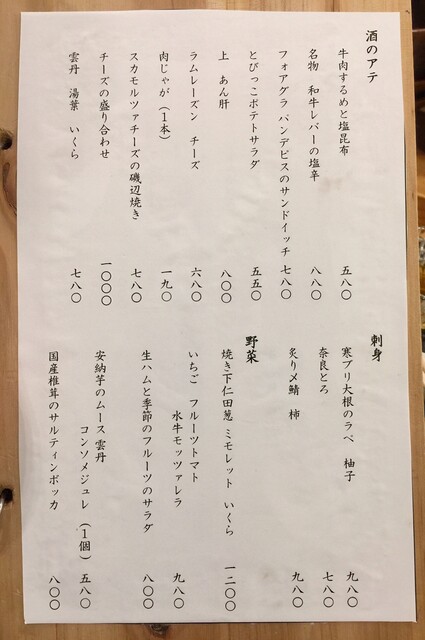 酒のアテ
牛肉するめと塩昆布 五八〇
名物 和牛レバーの塩辛 八八〇
フォアグラ パンデピスのサンドイッチ 七八〇
とびっこポテトサラダ 五五〇
上 あん肝 八〇〇
ラムレーズン チーズ 六八〇
肉じゃが(1本) 一九〇
スカモルツァチーズの磯辺焼き 七八〇
チーズの盛り合わせ 一〇〇〇
雲丹 湯葉 いくら 七八〇
刺身
寒ブリ大根のラペ 柚子 九八〇
奈良とろ 七八〇
炙り〆鯖 柿 九八〇
野菜
焼き下仁田葱 ミモレット いくら 一二〇〇
いちご フルーツトマト
水牛モッツァレラ 九八〇
生ハムと季節のフルーツのサラダ 八〇〇
安納芋のムース 雲丹
コンソメジュレ (1個) 五八〇
国産椎茸のサルティンボッカ 八〇〇